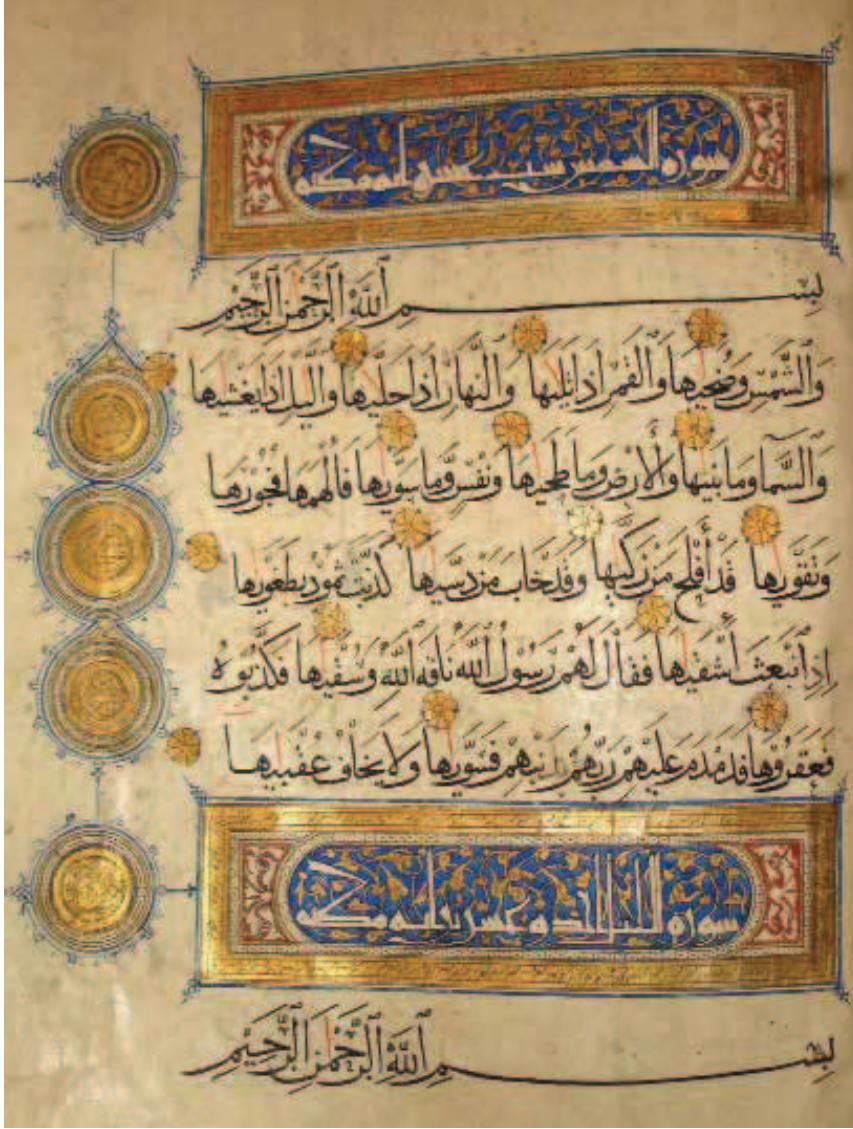 سورة الشمس ست عشر اية مكية
بسم ٱللَّهِ ٱلرَّحْمٰنِ ٱلرَّحِيمِ
وَٱلشَّمْسِ وَضُحَيٰهَا وَٱلْقَمَرِ إِذَا تَلَيٰهَا وَٱلنَّهَارِ إِذَا جَلَّيٰهَا وَٱلَّيْلِ إِذَا يَغْشَيٰهَا
وَٱلسَّمَآ وَمَا بَنَيٰهَا وَٱلْأَرْضِ وَمَا طَحَيٰهَا وَنَفْسٍ وَّمَا سَوَّيٰهَا فَأَلْهَمَهَا فُجُورَهَا
وَتَقْوَيٰهَا قَدْ أَفْلَحَ مَنْ زَكَّيٰهَا وَقَدْ خَابَ مَنْ دَسَّيٰهَا كَذَّبَتْ ثَمُودُ بِطَغْوَيٰهَا
إِذِ ٱنْبَعَثَ أَشْقَيٰهَا فَقَالَ لَهُمْ رَسُولُ ٱللَّهِ نَاقَةَ ٱللَّهِ وَسُقْيٰهَا فَكَذَّبُوهُ
فَعَقَرُوهَا فَدَمْدَمَ عَلَيْهِمْ رَبُّهُمْ بِذَنْبِهِمْ فَسَوَّيٰهَا وَلَا يَخَافُ عُقْبَيٰهَا
سورة الليل احد وعشرين اية مكية
بسم ٱللَّهِ ٱلرَّحْمٰنِ ٱلرَّحِيمِ